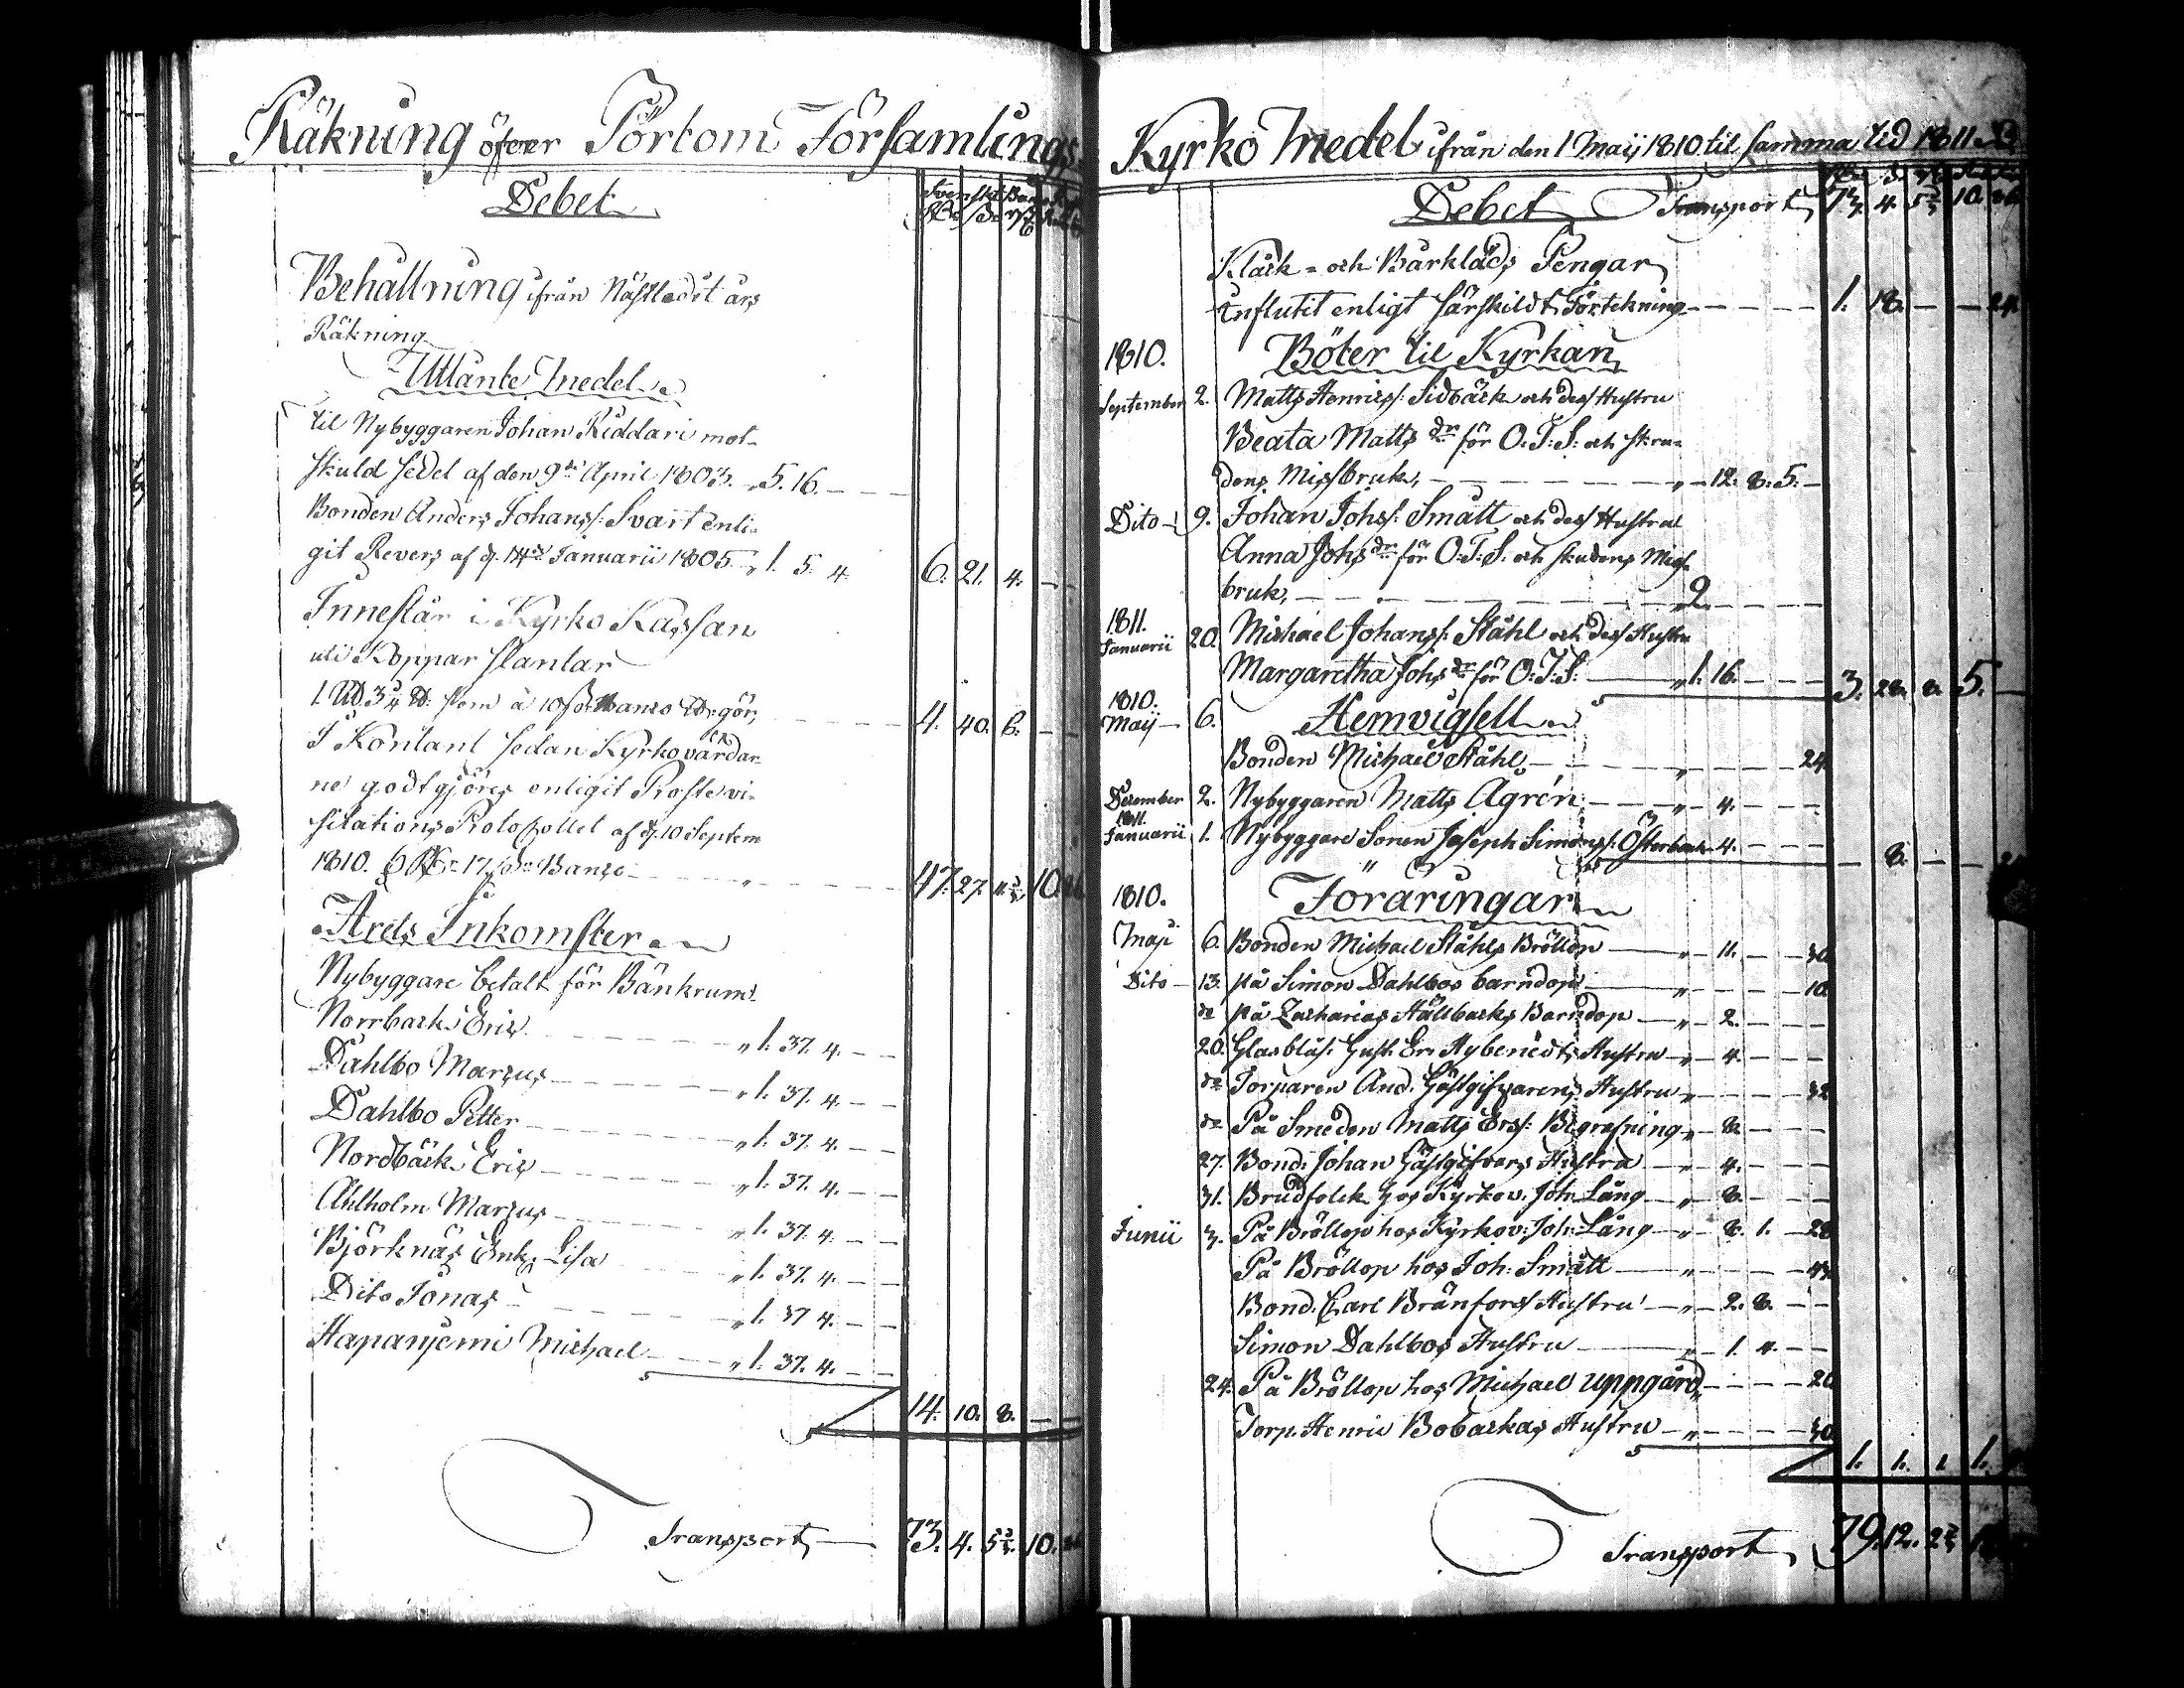 Räkning öfver Pörtom Församlings
Debet
Svenskt Banco
Behållning ifrån Näslledit års
Räkning
Utlånte Medel
til Nybyggaren Johan Riddari mot
skuld sedel af den 9de April 1803. „ 5. 16. — —
Bonden Anders Johanss: Svart enli-
git Revers af d. 14de Januarii 1805. „ 1. 5. 4. 6. 21. 4. — —
Innestår i Kyrko Kassan
uti Koppar slantar
1 Ud. 3/4 som à 10 Banco gör, — — 4. 40. 6. — —
I Kontant sedan Kyrkovärdar-
ne godtgjöres enligit Prostevi-
sitations Protocollet af d. 10 Septem
1810. 6 Rdr 17 s. Banco — — „ — — 47. 27. 10.
Årets Inkomster
Nybyggare betalt för Bänkrum
Norrback Eric — — „ 1. 37. 4. — —
Dahlbo Marcus — — „ 1. 37. 4. — —
Dahlbo Petter — — „ 1. 37. 4. — —
Nordbäck Eric — — „ 1. 37. 4. — —
Ahlholm Marcus — — „ 1. 37. 4. — —
Björknäs Enk. Lisa — — „ 1. 37. 4. — —
Dito Jonas — — „ 1. 37 4. — —
Hapanjemi Michael — — „ 1. 37. 4. — —
14. 10. 8. — —
Transport — 73. 4. 5 10.
Kyrko Medel ifrån den 1 Maij 1810 til samma tid 1811
Debet Transport 73. 4. 5 10.
Klåck- och Bårkläds Pengar
influtit enligt särskildt Förtekning — — 1. 18. — — 24.
1810. Böter til Kyrkan
September 2. Matts Henricss: Sidbäck och dess Hustru
Beata Matts dr för O: T: S: och skru-
dens Missbruk, — — „ — 12. 8. 5. —
Dito — 9. Johan Johss: Smått och dess Hustru
Anna Johs dr för O: T: S: och skudens Miss-
bruk, — — „ 2. — — —
1811.
Januarii 20. Michael Johanss: Ståhl och dess Hustru
Margaretha Johs dr för O: T: S: — „ 1. 16. — — — 3. 28. 8. 5. —
1810.
Maij — 6. Hemvigsell
Bonden Michael Ståhl — — „ — — — 24.
December 2. Nybyggaren Matts Agrén — — „ — 4. — — —
1811.
Januarii 1. Nybyggare Sonen Joseph Simonss: Österback 4. — — — — 8. — —
1810. Föräringar
Maji 6. Bonden Michael Ståhls Bröllop — „ — 11. — — 30.
Dito — 13. på Simon Dahlbos barndop — „ — — — 10.
do på Zacharias Hållbacks Barndop — „ — 2. — — —
20. Glasblås: Gust. Er. Nybenedts Hustru — „ — 4. — — —
do Torparen And. Gästgifvarens Hustru „ — — — 32.
do På Smeden Matts Erss: Begrafning „ — 8. — — —
27. Bond: Johan Gästgifvars Hustru — „ — 4. — — —
31. Brudfolck hos Kyrkov: Joh. Lång — „ — 8. — — —
Junii 3. På Bröllop hos Kyrkov: Joh: Lång — „ — 8. 1. — 28.
På Bröllop hos Joh: Smått — „ — — —
Bond. Carl Bränfors Hustru — „ — 2. 8. — —
Simon Dahlbos Hustru — „ — 1. 4. — —
24. På Bröllop hos Michael uppgård — — — 20.
Torp. Henric Bobackas Hustru — „ — — — 30.
1. 1. 1. 1.
Transport 79. 12. 2